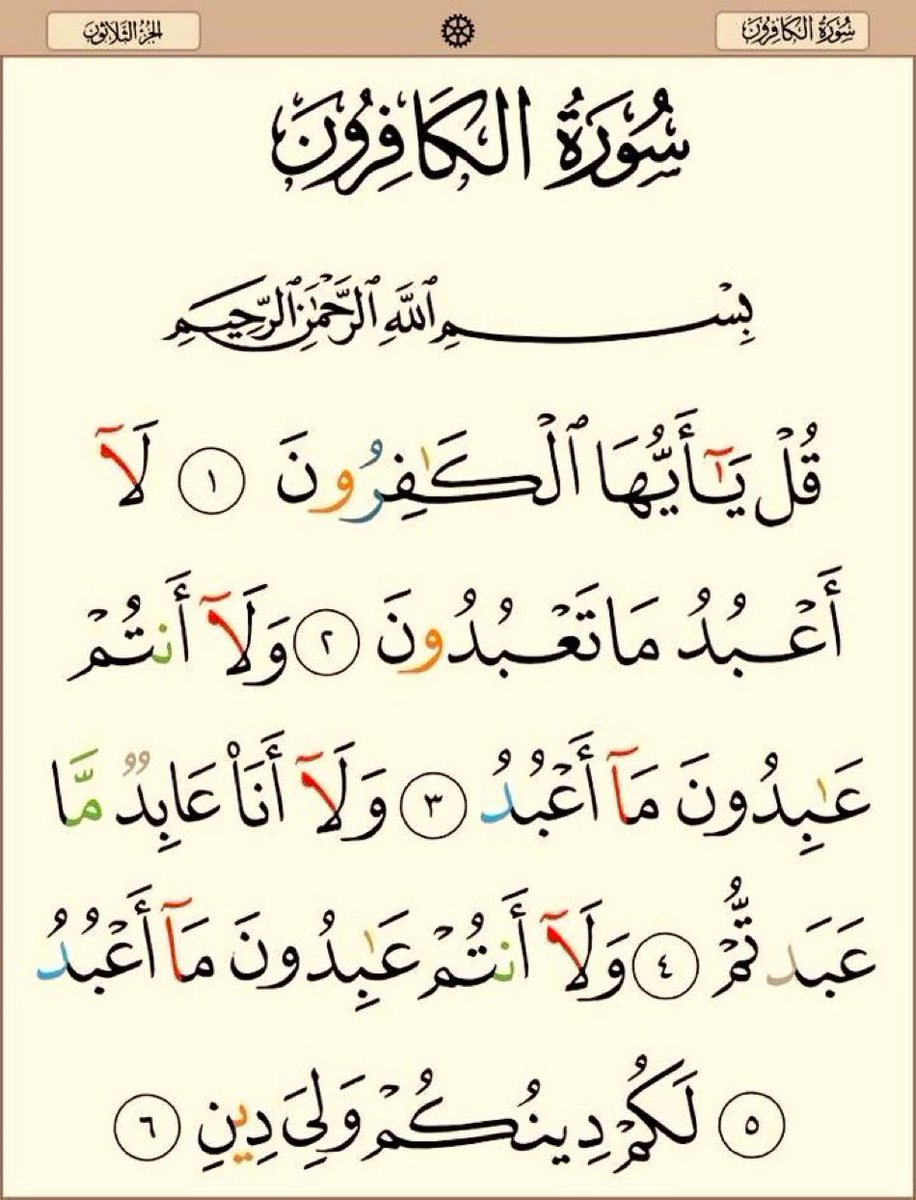 سُورَةُ الكَافِرُونَ
الجزءُ الثَّلَاثُونَ
سُورَةُ الكَافِرُونَ
بِسْمِ ٱللَّهِ ٱلرَّحْمَٰنِ ٱلرَّحِيمِ
قُلْ يَـٰٓأَيُّهَا ٱلْكَـٰفِرُونَ ١ لَآ
أَعْبُدُ مَا تَعْبُدُونَ ٢ وَلَآ أَنتُمْ
عَـٰبِدُونَ مَآ أَعْبُدُ ٣ وَلَآ أَنَا۠ عَابِدٌ مَّا
عَبَدتُّمْ ٤ وَلَآ أَنتُمْ عَـٰبِدُونَ مَآ أَعْبُدُ
٥ لَكُمْ دِينُكُمْ وَلِىَ دِينِ ٦